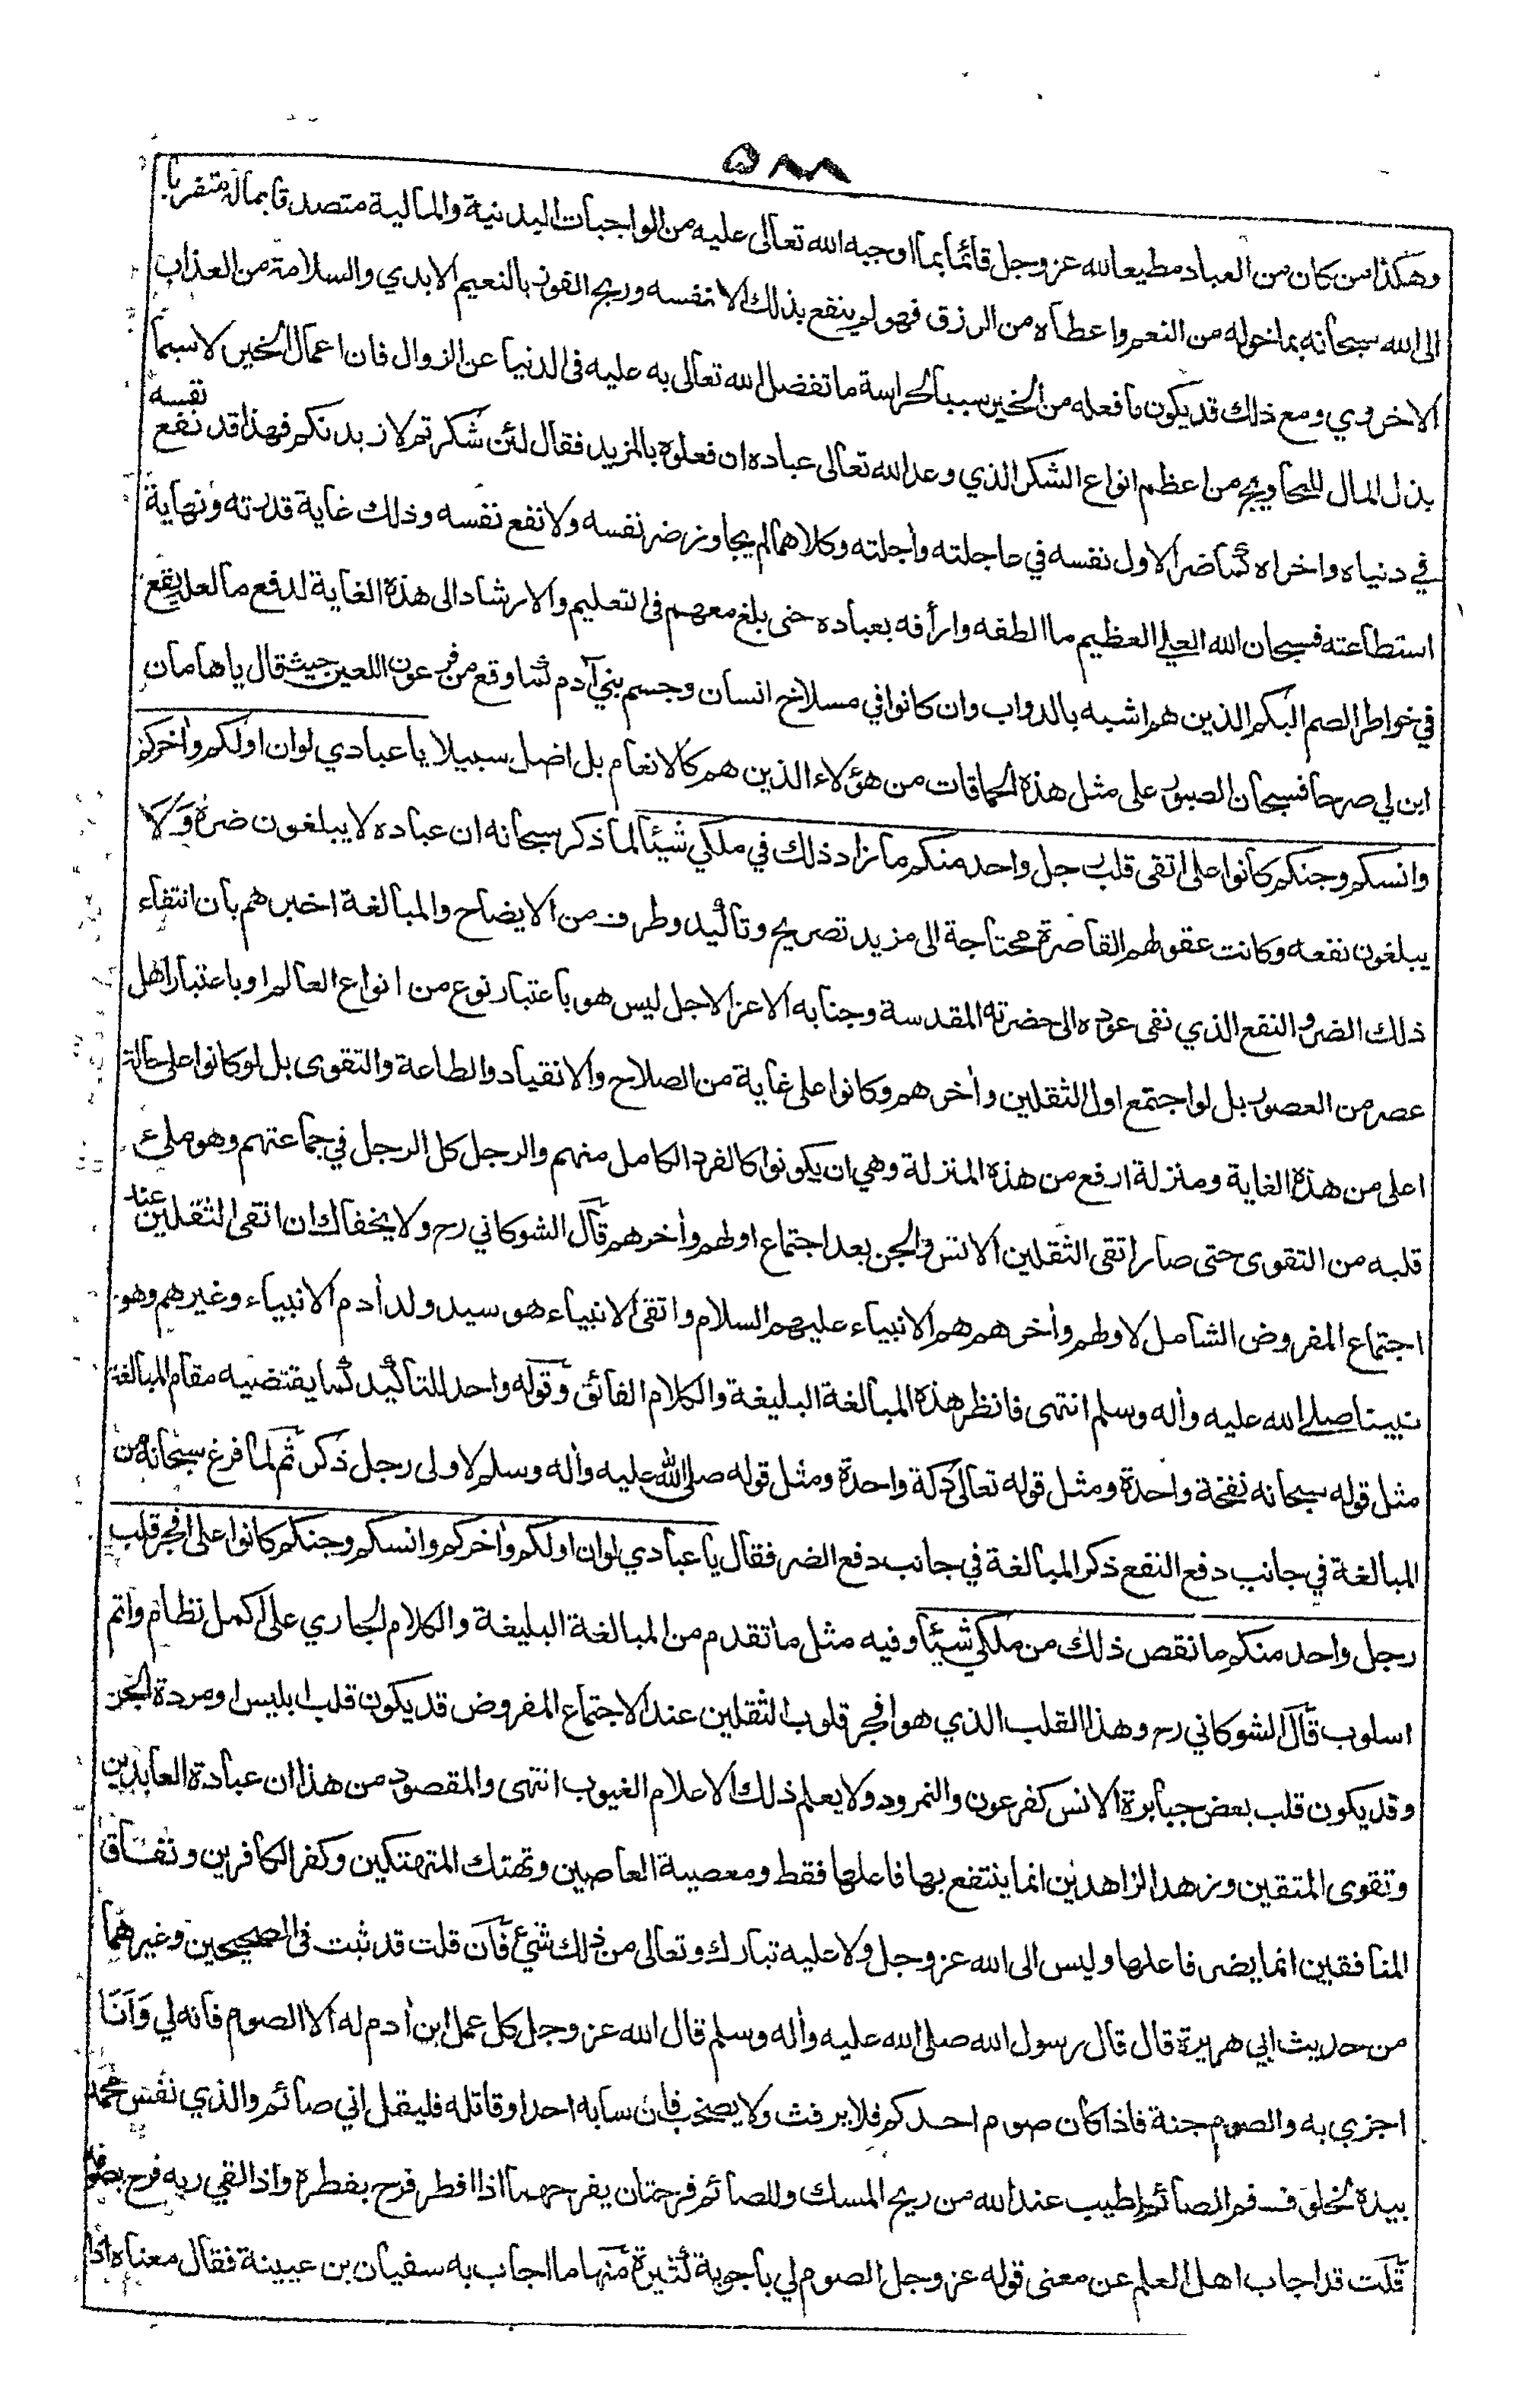 ٥٨٨
وهكذا من كان من العباد مطيعا لله عز وجل قائما بما اوجبه الله تعالى عليه من الواجبات البدنية والمالية متصدقا بماله متقربا
الى الله سبحانه بما خوله من النعم واعطاه من الرزق فهو لم ينفع بذلك الا نفسه وربح الفوز بالنعيم الابدي والسلامة من العذاب
الاخروي ومع ذلك قد يكون ما فعله من الخير سببا لحراسة ما تفضل الله تعالى به عليه في الدنيا عن الزوال فان اعمال الخير لا سيما
بذل المال للمحاويج من اعظم انواع الشكر الذي وعد الله تعالى عباده ان فعلوه بالمزيد فقال لئن شكرتم لازيدنكم فهذا قد نفع نفسه
في دنياه واخراه كما ضر الاول نفسه في عاجلته وآجلته وكلاهما لم يجاوز ضر نفسه ولا نفع نفسه وذلك غاية قدرته ونهاية
استطاعته فسبحان الله العلي العظيم ما الطفه وارأفه بعباده حتى بلغ معهم في التعليم والارشاد الى هذه الغاية لدفع ما لعله يقع
في خواطر الصم البكم الذين هم اشبه بالدواب وان كانوا في مسلاخ انسان وجسم بني آدم كما وقع من فرعون اللعين حيث قال يا هامان
ابن لي صرحا فسبحان الصبور على مثل هذه الحماقات من هؤلاء الذين هم كالانعام بل اضل سبيلا يا عبادي لو ان اولكم وآخركم
وانسكم وجنكم كانوا على اتقى قلب رجل واحد منكم ما زاد ذلك في ملكي شيئا لما ذكر سبحانه ان عباده لا يبلغون ضره ولا
يبلغون نفعه وكانت عقولهم القاصرة محتاجة الى مزيد تصريح وتاكيد وطرف من الايضاح والمبالغة اخبرهم بان انتفاء
ذلك الضر والنفع الذي نفى عوده الى حضرته المقدسة وجنابه الاعز الاجل ليس هو باعتبار نوع من انواع العالم او باعتبار اهل
عصر من العصور بل لو اجتمع اول الثقلين وآخرهم وكانوا على غاية من الصلاح والانقياد والطاعة والتقوى بل لو كانوا على حالة
اعلى من هذه الغاية ومنزلة ارفع من هذه المنزلة وهي ان يكونوا كالفرد الكامل منهم والرجل كل الرجل في جماعتهم وهو ملئ
قلبه من التقوى حتى صار اتقى الثقلين الانس والجن بعد اجتماع اولهم وآخرهم قال الشوكاني رح ولا يخفاك ان اتقى الثقلين عند
اجتماع المفروض الشامل لاولهم وآخرهم هم الانبياء عليهم السلام واتقى الانبياء هو سيد ولد آدم الانبياء وغيرهم وهو
نبينا صلى الله عليه وآله وسلم انتهى فانظر هذه المبالغة البليغة والكلام الفائق وقوله واحد للتأكيد كما يقتضيه مقام المبالغة
مثل قوله سبحانه نفخة واحدة ومثل قوله تعالى دكة واحدة ومثل قوله صلى الله عليه وآله وسلم لاولى رجل ذكر ثم لما فرغ سبحانه من
المبالغة في جانب دفع النفع ذكر المبالغة في جانب دفع الضر فقال يا عبادي لو ان اولكم وآخركم وانسكم وجنكم كانوا على افجر قلب
رجل واحد منكم ما نقص ذلك من ملكي شيئا وفيه مثل ما تقدم من المبالغة البليغة والكلام الجاري على اكمل نظام واتم
اسلوب قال الشوكاني رح وهذا القلب الذي هو افجر قلوب الثقلين عند الاجتماع المفروض قد يكون قلب ابليس او مردة الجن
وقد يكون قلب بعض جبابرة الانس كفرعون والنمرود ولا يعلم ذلك الا علام الغيوب انتهى والمقصود من هذا ان عبادة العابدين
وتقوى المتقين وزهد الزاهدين انما ينتفع بها فاعلها فقط ومعصية العاصين وتهتك المتهتكين وكفر الكافرين ونفاق
المنافقين انما يضر فاعلها وليس الى الله عز وجل ولا عليه تبارك وتعالى من ذلك شئ فان قلت قد ثبت في الصحيحين وغيرهما
من حديث ابي هريرة قال قال رسول الله صلى الله عليه وآله وسلم قال الله عز وجل كل عمل ابن آدم له الا الصوم فانه لي وانا
اجزي به والصوم جنة فاذا كان صوم احدكم فلا يرفث ولا يصخب فان سابه احد او قاتله فليقل اني صائم والذي نفس محمد
بيده لخلوف فم الصائم اطيب عند الله من ريح المسك وللصائم فرحتان يفرحهما اذا افطر فرح بفطره واذا لقي ربه فرح بصومه
قلت قد اجاب اهل العلم عن معنى قوله عز وجل الصوم لي باجوبة كثيرة منها ما اجاب به سفيان بن عيينة فقال معناه اذا